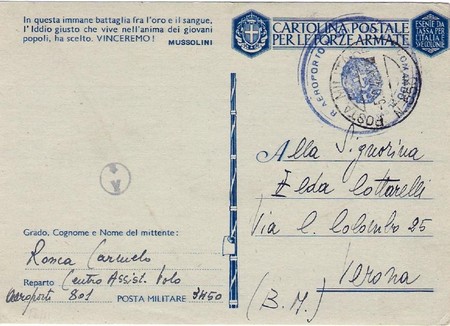 In questa immane battaglia fra l'oro e il sangue,
l'Iddio giusto che vive nell'anima dei giovani
popoli, ha scelto. VINCEREMO!
MUSSOLINI
CARTOLINA POSTALE
PER LE FORZE ARMATE
ESENTE DA
TASSA PER
L'ITALIA
E SUE COLONIE
R. AEROPORTO
POSTA MILITARE
Alla Signorina
Elda Cottarelli
Via C. Colombo 25
Verona
(B. M.)
Grado, Cognome e Nome del mittente:
Ronca Carmelo
Reparto Centro Assist. Volo
Aeroporto 801 POSTA MILITARE 3450